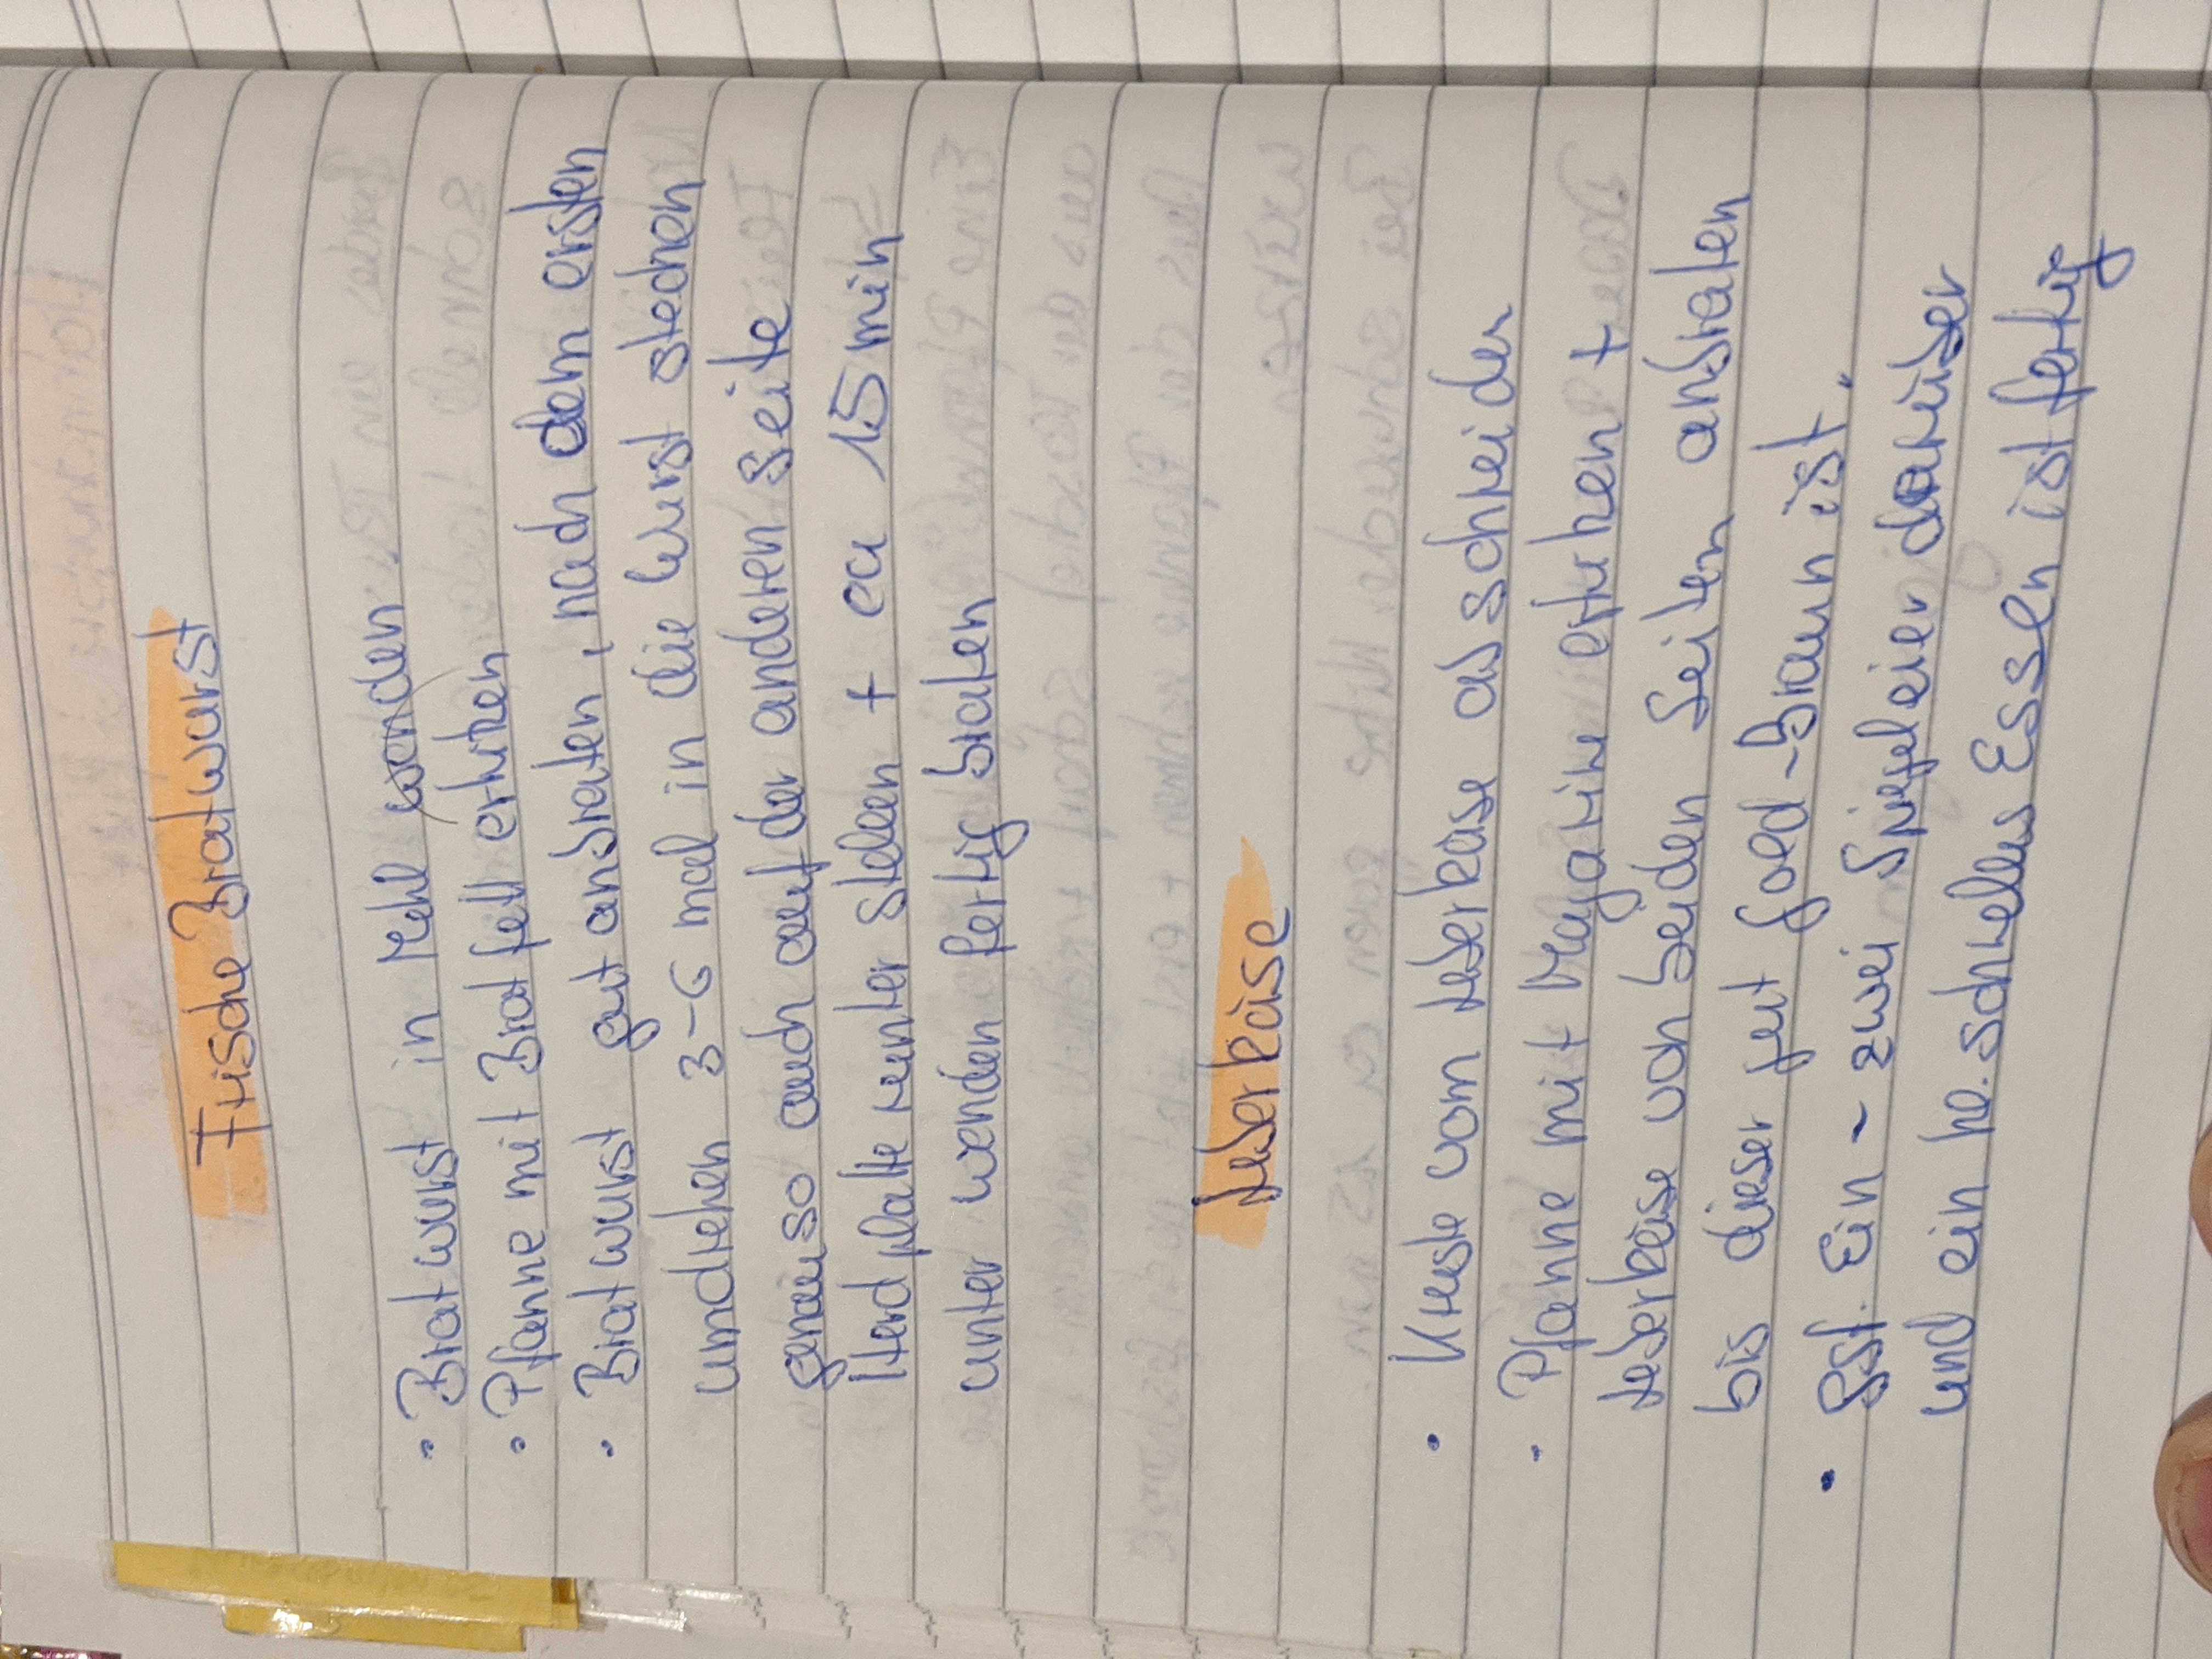 Frische Bratwurst
· Bratwurst in Mehl wenden
· Pfanne mit Bratfett erhitzen
· Bratwurst gut anbraten, nach dem ersten
umdrehen 3-6 mal in die Wurst stechen
genauso auch auf der anderen Seite
Herdplatte runter stellen + ca 15 min
unter wenden fertig braten
Leberkäse
· Kruste vom Leberkäse abschneiden
· Pfanne mit Magarine erhitzen +
Leberkäse von beiden Seiten anbraten
bis dieser gut Gold-Braun ist.
· Ggf. Ein - zwei Spiegeleier darüber
und ein schnelles Essen ist fertig